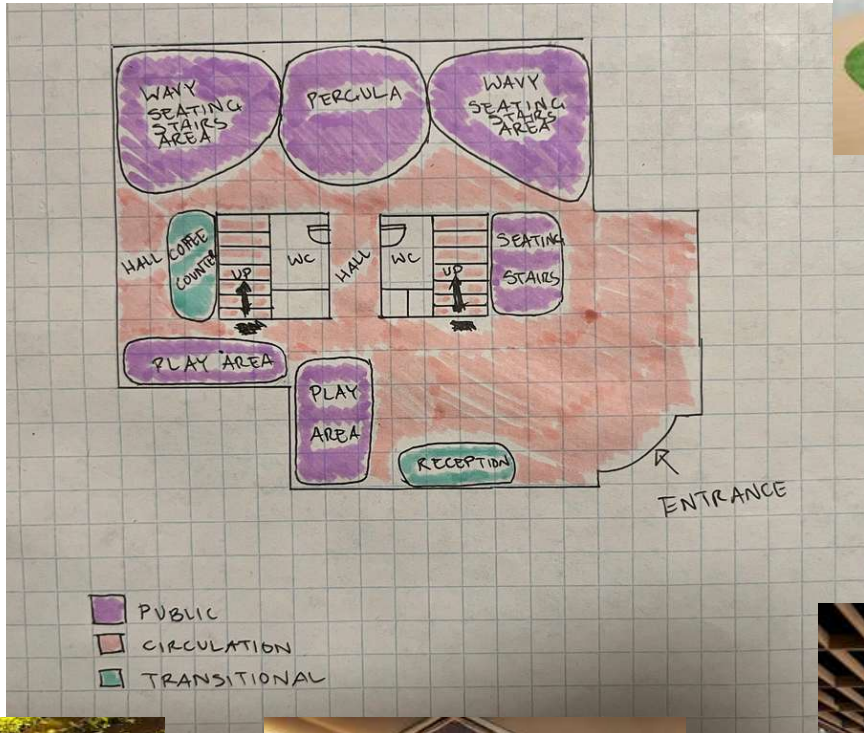 WAVY
SEATING
STAIRS
AREA
PERGULA
WAVY
SEATING
STAIRS
AREA
HALL
COFFEE
COUNTER
UP
WC
HALL
WC
UP
SEATING
STAIRS
PLAY AREA
PLAY
AREA
RECEPTION
ENTRANCE
PUBLIC
CIRCULATION
TRANSITIONAL